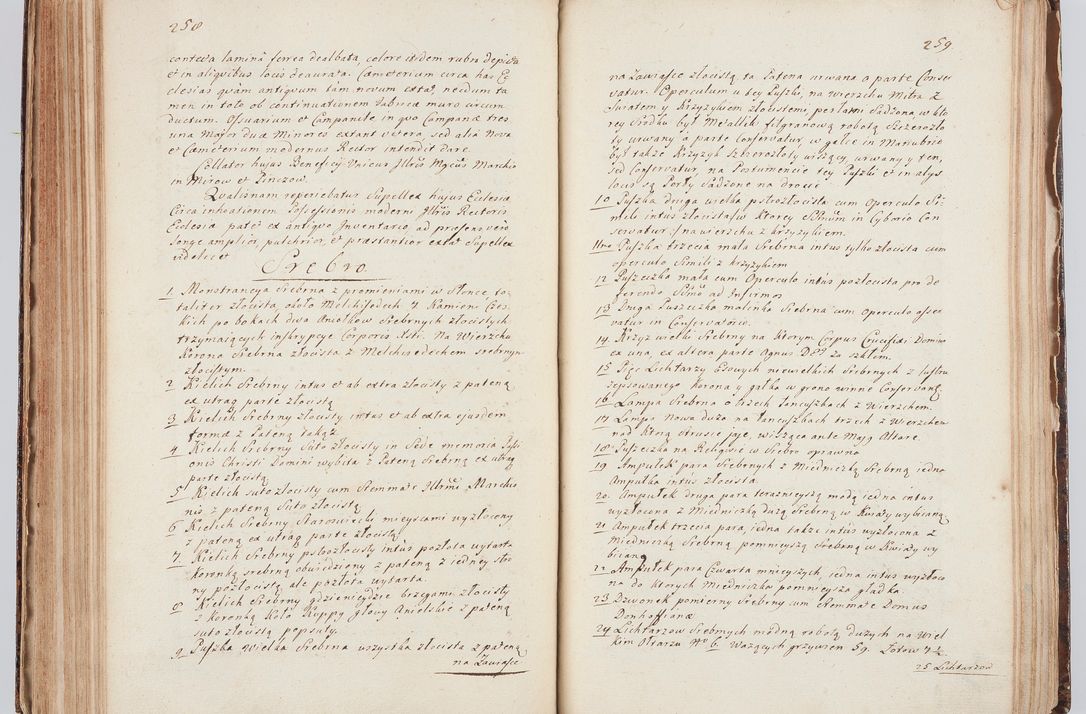 258
contecta lamina ferrea dealbata, colore itidem rubro depicta
et in aliquibus locis deaurata. Cæmeterium circa has Ec
clesias quam antiquum tam novum extat, necdum ta
men in toto ob continuationem Fabricæ muro circum
ductum. Ossuarium et Campanile in quo Campanæ tres
una Major duæ Minores extant vetera, sed alia Nova
et Cæmeterium modernus Rector intendit dare.
Collator hujus Beneficij Unicus Illris Mgcus Marchio
in Mirow et Pinczow.
Qualisnam reperiebatur Supellex hujus Ecclesiæ
Circa inchoationem Possessionis moderni Illris Rectoris
Ecclesia patet ex antiquo Inventario, ad præsens vero
longe amplior, pulchrior, et præstantior extat Supellex
videlicet
Srebro
1. Monstrancya Srebrna z promieniami w Słońce, to
taliter złocista około Melchisedech 4 Kamien. Czes
kich po bokach dwa Aniołkow Srebrnych złocistych
trzymaiących inskrypcye Corporis Xsti. Na Wierzchu
Korona Srebrna złocista z Melchisedechem srebrnym
złocistym.
2 Kielich Srebrny intus et ab extra złocisty z pateną
ex utraq parte złocistą
3 Kielich Srebrny złocisty intus et ab extra ejusdem
formæ z Pateną takąż
4 Kielich Srebrny Suto złocisty in Sede memoria Passi
onis Christi Domini wybita z Pateną Srebrną ex utraq
parte złocistą
5 Kielich suto złocisty cum Stemmate Illrmi Marchio
nis z pateną Suto złocistą
6 Kielich Srebrny Staroswiecki mieyscami wyzłocony
z pateną ex utraq parte złocistą
7. Kielich Srebrny pstrozłocisty intus pozłota wytarta
koronką srebrną obwiedziony z pateną z iedney stro
ny pozłocistą ale pozłota wytarta.
8 Kielich Srebrny gdzieniegdzie brzegami złocisty
z koronką koło Kuppy głowy Anielskie z pateną
suto złocistą popsuty.
9 Puszka Wielka Srebrna wszystka złocista z pateną
na Zawiasce
259.
na Zawiasce złocistą, ta Patena urwana a parte Conser
vatur. Operculum u tey Puszki, na wierzchu Mitra z
Swiatem y Krzyżykiem złocistemi, perłami Sadzona w kto
rey srodku był Metallik filgranową robotą Szczerozło
ty urwany a parte Conservatur, w gałce in Manubrio
był także Krzyżyk Szczerozłoty wiszący, urwany y ten,
sed Conservatur, na Postumencie tey Puszki et in alijs
locis są Perły sadzone na drocie
10. Puszka druga wielka pstrozłocista cum Operculo Si
mili intus złocista /w ktorey SSmum in Cyborio Con
servatur./ na wierzchu z krzyzykiem.
11mo Puszka trzecia mała Srebrna intus tylko złocista cum
operculo Simili z krzyżykiem
12 Puszeczka mała cum Operculo intus pozłocista pro de
ferendo SSmo ad Infirmos
13 Druga Puszeczka malinka Srebrna cum operculo asser
vatur in Conservatorio.
14. Krzyż wielki Srebrny na ktorym Corpus Crucifixi Domini
ex una, ex altera parte Agnus Dei za szkłem.
15 Sześc Lichtarzy Esowych niewielkich Srebrnych z lustru
zepsowanego korona y gałka w grono winne Conservantur
16 Lampa Srebrna o trzech łancuszkach z Wierzchem.
17 Lampa Nowa duża na łancuszkach trzech z Wierzchem
nad ktorą strusie jaje, wisząca ante Majg Altare.
18 Puszeczka na Religwie w Srebro oprawna
19. Ampułek para Srebrnych z Miedniczką Srebrną iedna
Ampułka intus złocista
20. Ampułek druga para teraznieyszą modą iedna intus
wyzłocona z Miedniczką dużą Srebrną w Kwiaty wybijaną
21 Ampułek trzecia para, iedna także intus wyzłocona z
Miedniczką Srebrną pomnieyszą Srebrną w Kwiaty wy
bijaną
22 Ampułek para Czwarta mnieyszych, iedna intus wyzłoco
na do ktorych Miedniczka pomnieysza gładka
23 Dzwonek pomierny Srebrny cum Stemmate Domus
Donhoffianæ
24 Lichtarzow Srebrnych modną robotą dużych na Wiel
kim Ołtarzu No 6. Ważących grzywien 59. Łotow 4½
25 Lichtarzow